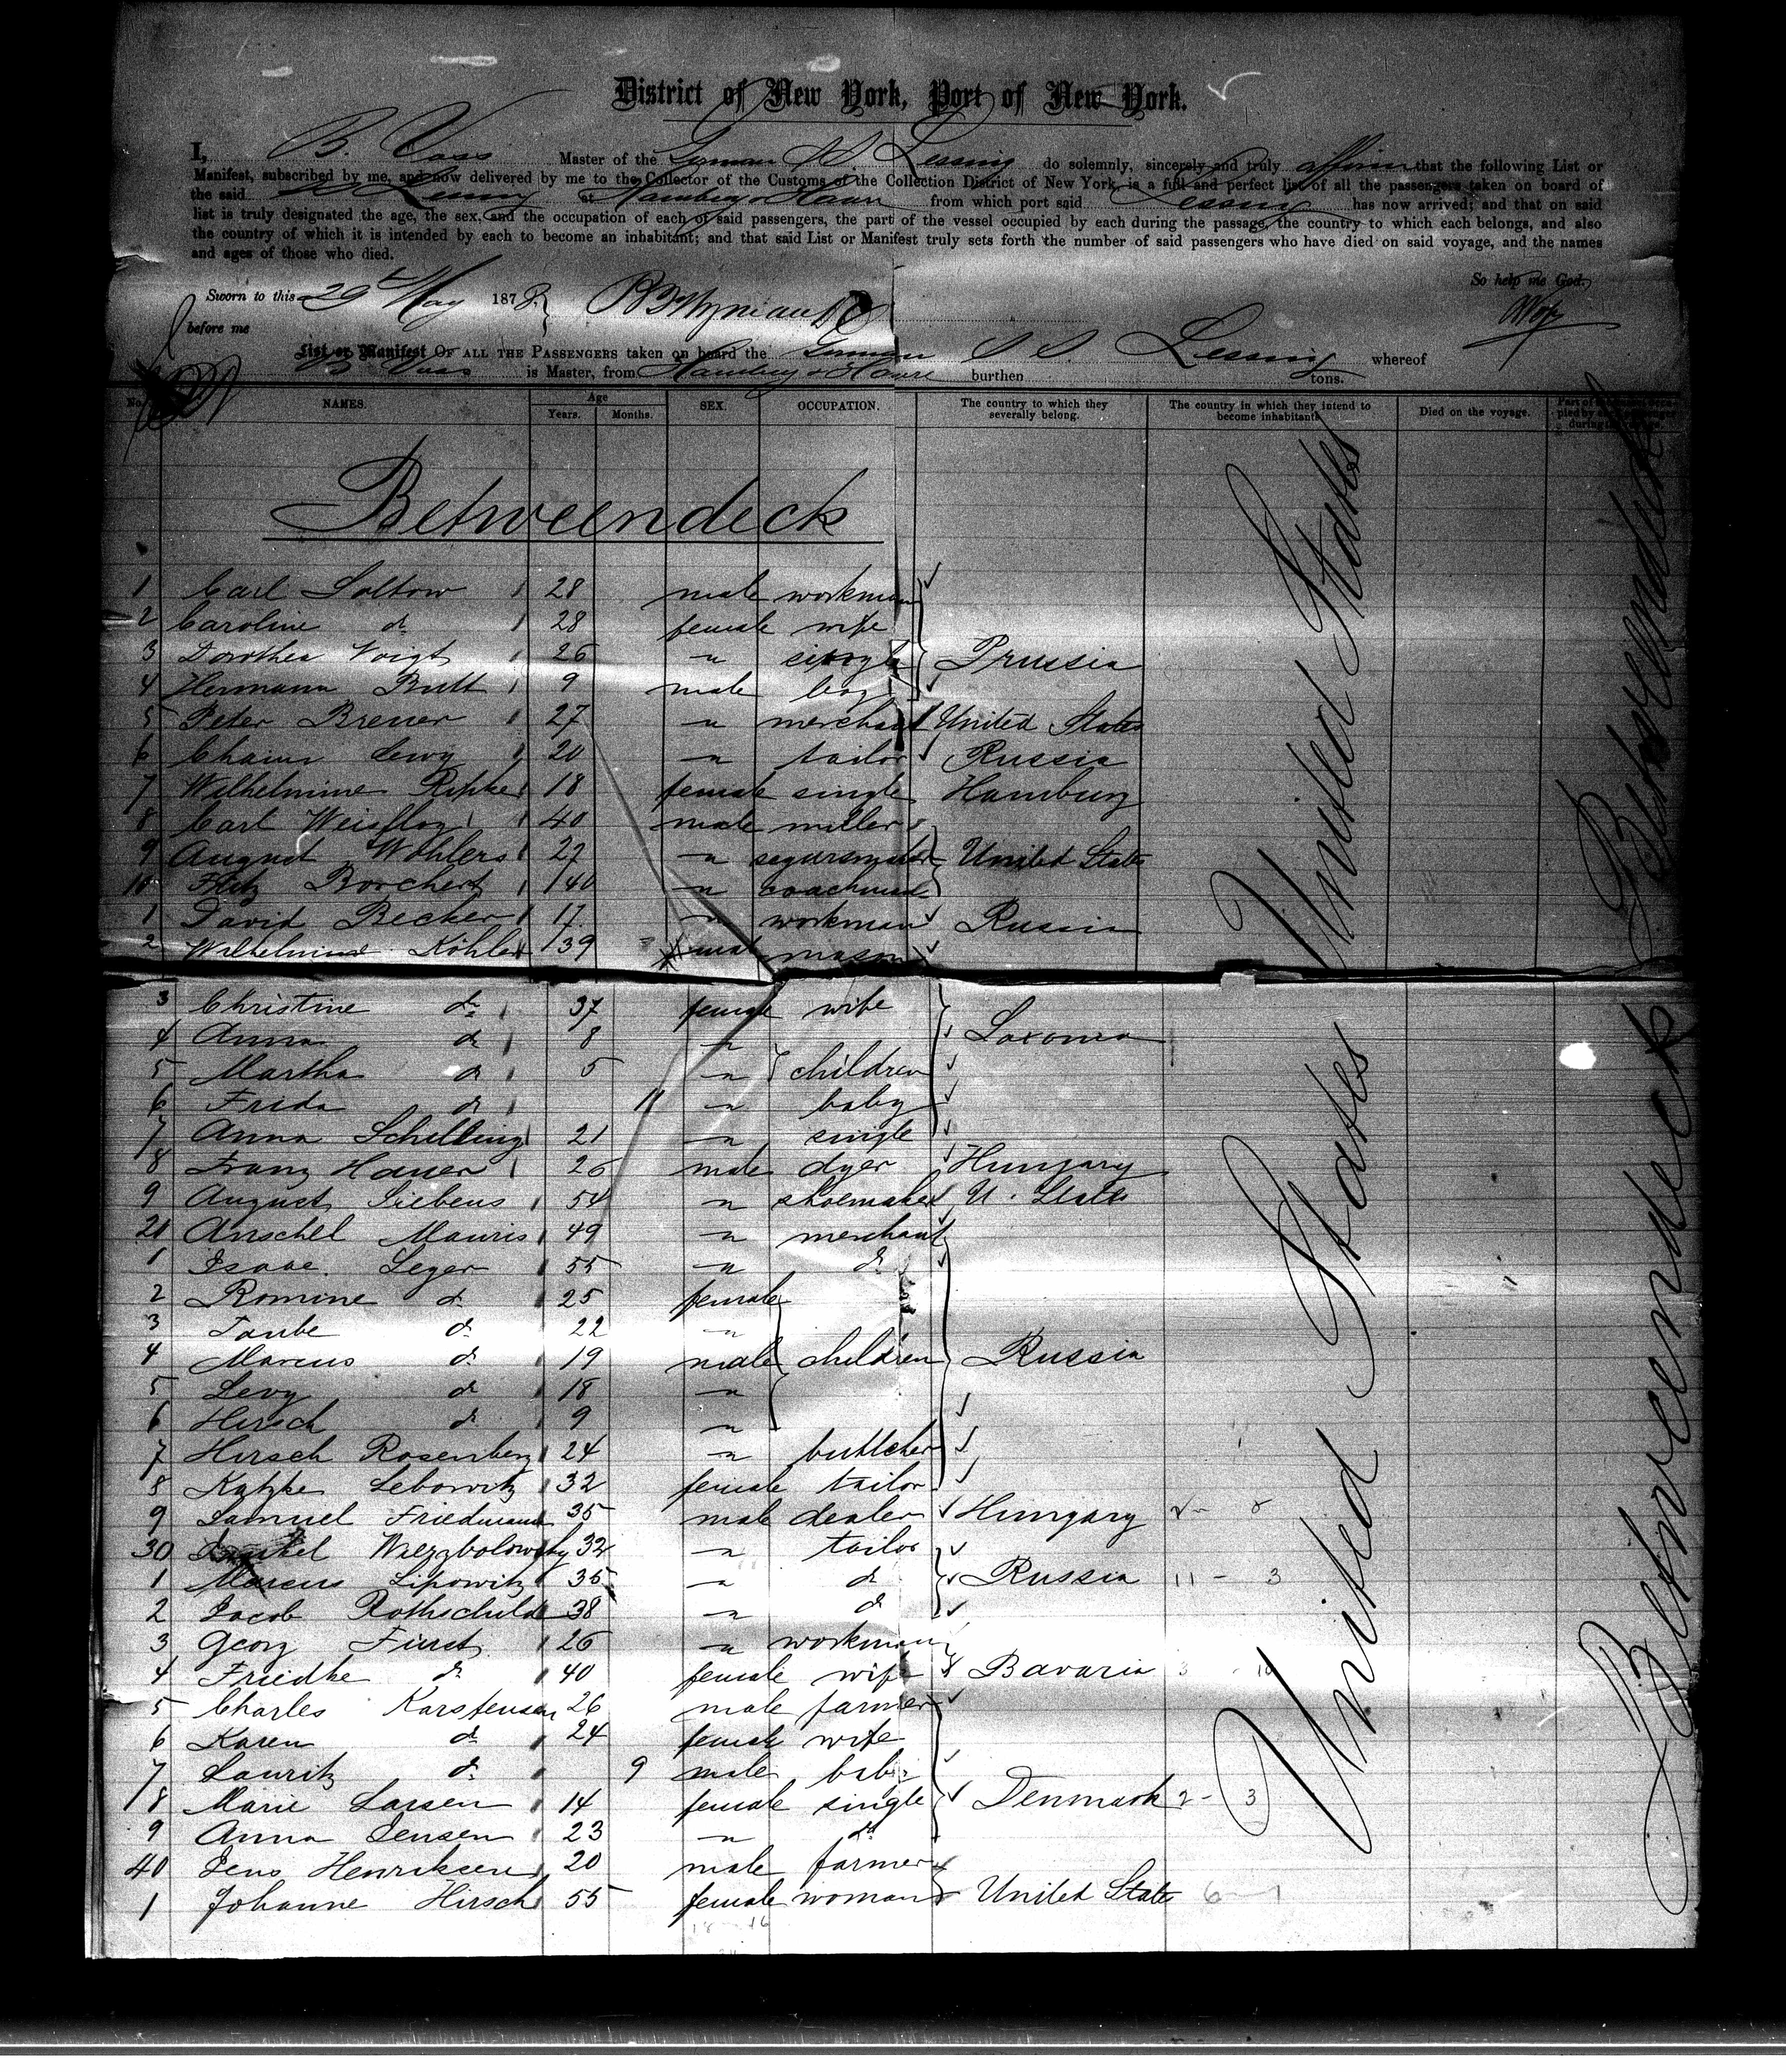 District of New York, Port of New York.
I, B. Voss Master of the German SS Lessing do solemnly, sincerely and truly affirm that the following List or
Manifest, subscribed by me, and now delivered by me to the Collector of the Customs of the Collection District of New York, is a full and perfect list of all the passengers taken on board of
the said Lessing at Hamburg & Havre from which port said Lessing has now arrived; and that on said
list is truly designated the age, the sex, and the occupation of each of said passengers, the part of the vessel occupied by each during the passage, the country to which each belongs, and also
the country of which it is intended by each to become an inhabitant; and that said List or Manifest truly sets forth the number of said passengers who have died on said voyage, and the names
and ages of those who died.
So help me God.
Sworn to this 29 May 1878
before me
List or Manifest OF ALL THE PASSENGERS taken on board the German S S. Lessing whereof
B Voss is Master, from Hamburg & Havre burthen tons.
No. NAMES. Age Years. Months. SEX. OCCUPATION. The country to which they severally belong. The country in which they intend to become inhabitants. Died on the voyage.
Betweendeck
1 Carl Soltow 28 male workman
2 Caroline do 28 female wife
3 Dorothea Voigt 26 " single Prussia
4 Hermann Butt 9 male boy
5 Peter Breuer 27 " merchant United States
6 Chaim Lewy 20 " tailor Russia
7 Wilhelmine Ripke 18 female single Hamburg
8 Carl Weisflog 40 male miller
9 August Wohlers 27 " United States
10 Fritz Borchert 40 " coachman
1 David Becker 17 " workman Russia
2 Wilhelmine Köhler 39 mason
3 Christine do 37 female wife
4 Anna do 8 " Saxonia
5 Martha do 5 " children
6 Frida do 11 " baby
7 Anna Schilling 21 " single
8 Franz Hauer 26 male dyer Hungary
9 August Siebens 54 " shoemaker U. States
20 Anschel Mauris 49 " merchant
1 Isaac Leger 55 " do
2 Romine do 25 female
3 Taube do 22 "
4 Marcus do 19 male children Russia
5 Levy do 18 "
6 Hirsch do 9 "
7 Hirsch Rosenberg 24 " buttcher
8 Katzke Lebowitz 32 female tailor
9 Samuel Friedmann 35 male dealer Hungary
30 Wierzbolowsky 32 " tailor
1 Marcus Lipowitz 35 " do Russia 11 - 3
2 Jacob Rothschild 38 " do
3 Georg Fürst 26 " workman
4 Friedke do 40 female wife Bavaria
5 Charles Karstensen 26 male farmer
6 Karen do 24 female wife
7 Lauritz do 9 male baby
8 Marie Larsen 14 female single Denmark 2 - 3
9 Anna Jensen 23 " do
40 Jens Henriksen 20 male farmer
1 Johanne Hirsch 55 female woman United State
United States
United States
Betweendeck
Betweendeck